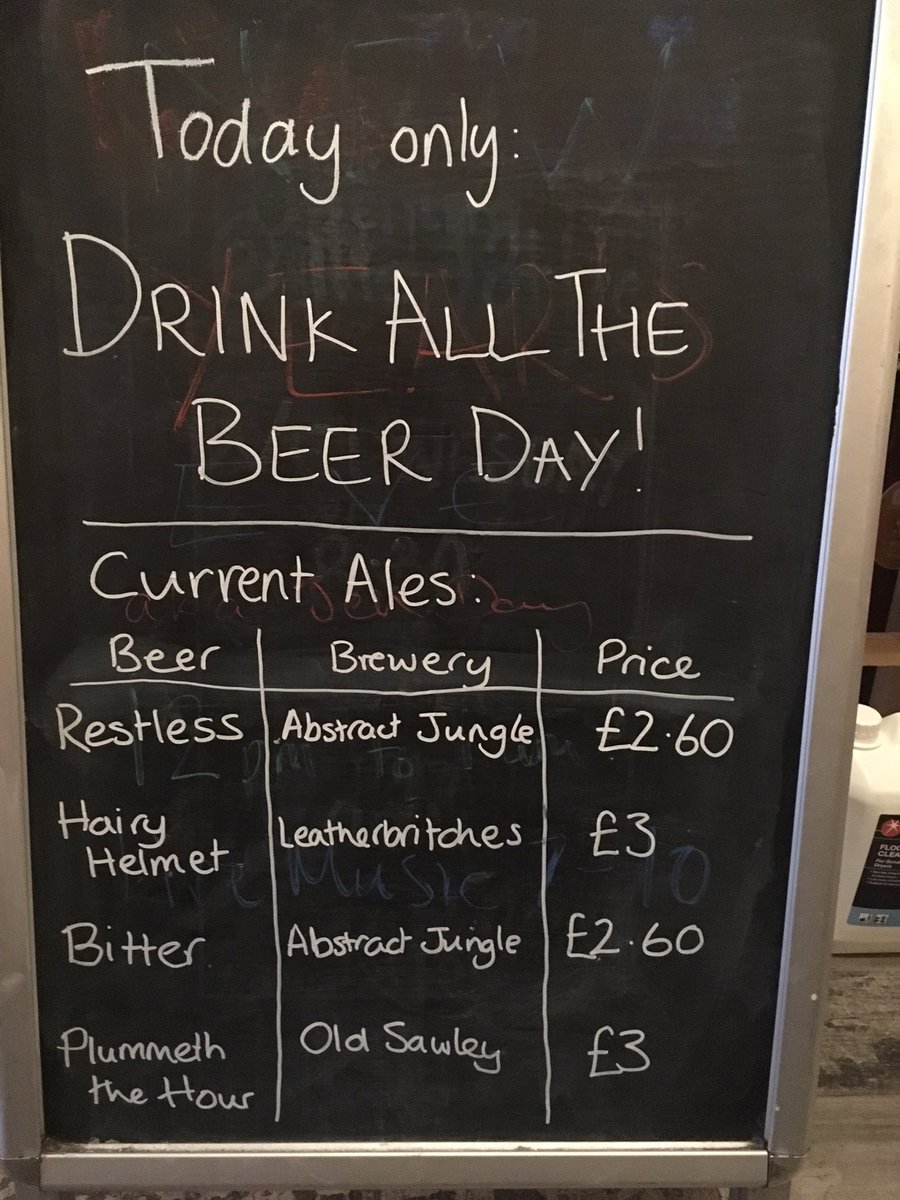 Today only:
DRINK ALL THE
BEER DAY!
Current Ales:
Beer Brewery Price
Restless Abstract Jungle £2.60
Hairy Helmet Leatherbritches £3
Bitter Abstract Jungle £2.60
Plummeth the Hour Old Sawley £3
YEARS
EVE
12 pm TO
Live Music